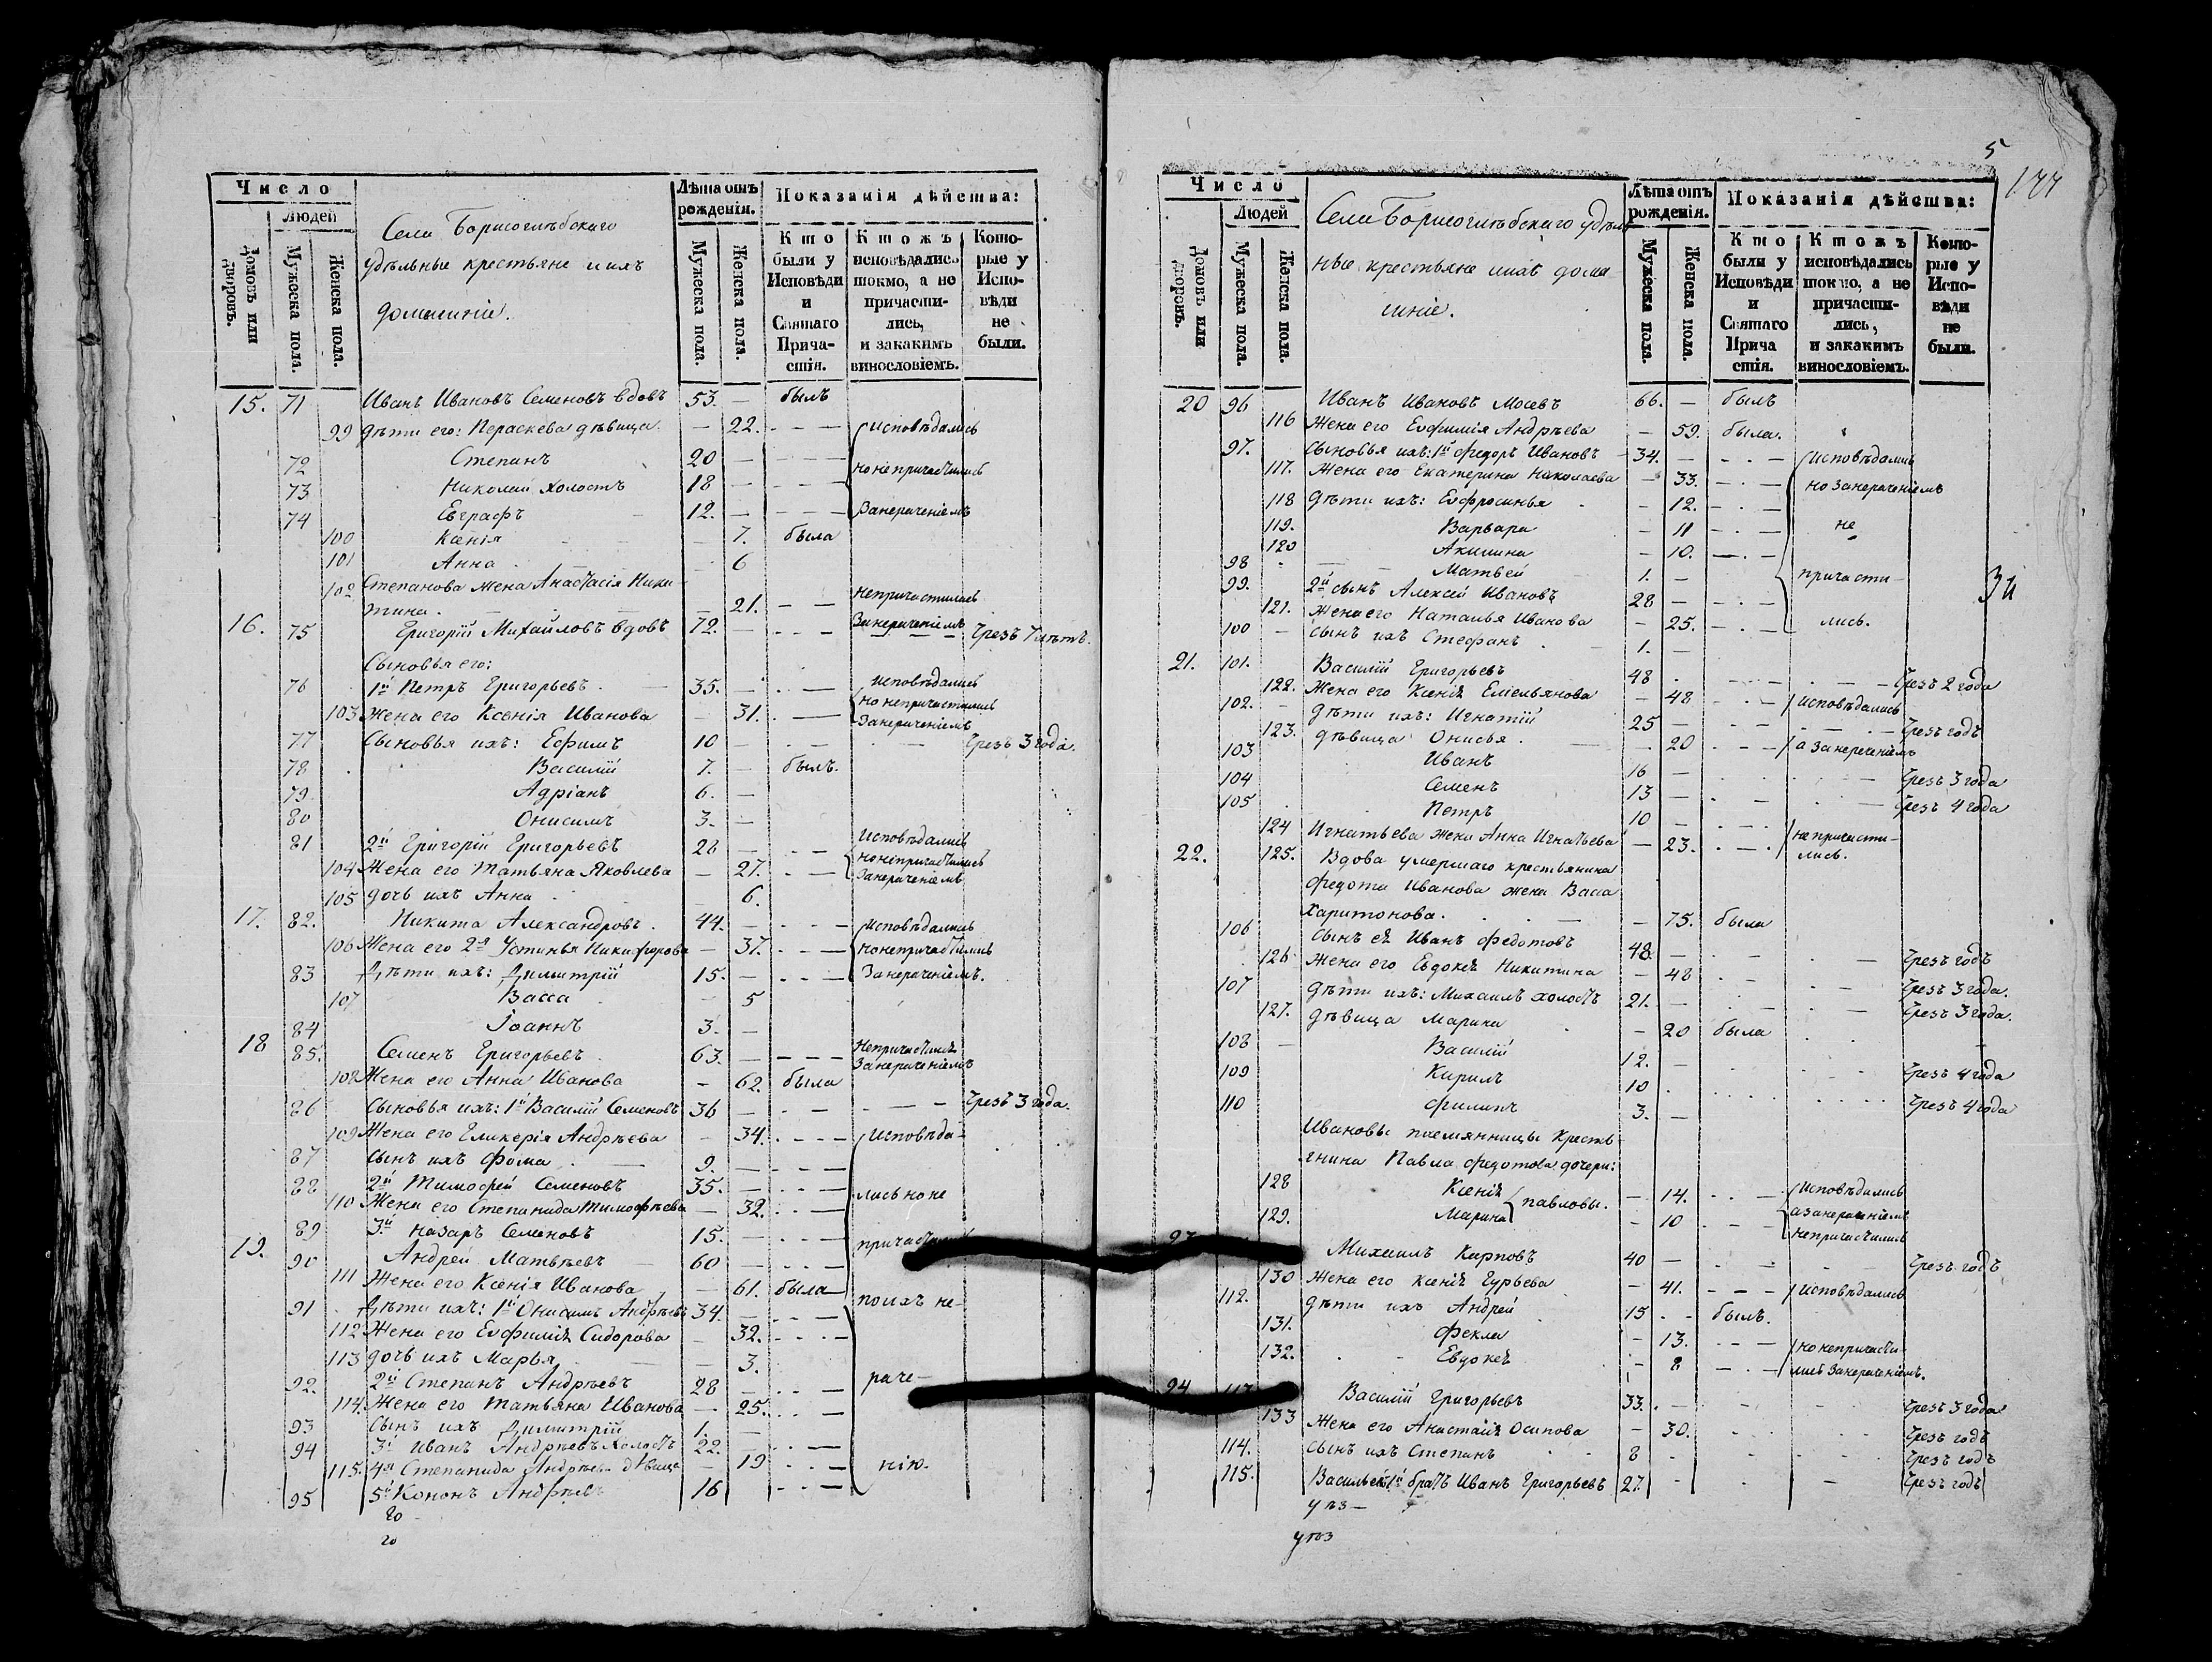 Число
Людей
Домовъ или дворовъ.
Мужеска пола.
Женска пола.
Села Борисоглѣбскаго
удѣльные крестьяне и ихъ
домашніе.
Лѣта отъ рожденія.
Мужеска пола.
Женска пола.
Показанія дѣйства:
Кто были у Исповѣди и Святаго Причастія.
Ктожъ исповѣдались токмо, а не причастились, и закакимъ винословіемъ.
Которые у Исповѣди не были.
15. 71 Иванъ Ивановъ Семеновъ вдовъ 53. — былъ
99 дѣти его: Параскева дѣвица — 22. - — — исповѣдались
72 Степанъ 20 — - — —
73 Николай холостъ 18 — - — — но не причастились
74 Евграфъ 12. — - — — Занераченіемъ
100 Ксенія — 7. была
101 Анна 6
102 Степанова жена Анастасія Ники-
тина. — 21. — — непричастилась Занераченіемъ
16. 75 Григорій Михайловъ вдовъ 72. — чрезъ 7 лѣтъ.
Сыновья его:
76 1й Петръ Григорьевъ. 35. — исповѣдались
103 Жена его Ксенія Иванова — 31. — но непричастились Занераченіемъ
77 Сыновья ихъ: Ефимъ 10 — чрезъ 3 года.
78 Василій 7. — былъ.
79 Адріанъ 6. —
80 Онисимъ 3. —
81 2й Григорій Григорьевъ 28 — Исповѣдались
104 Жена его Татьяна Яковлева — 27. — но непричастились Занераченіемъ
105 дочь ихъ Анна 6.
17. 82. Никита Александровъ. 44. — исповѣдались
106 Жена его 2я Устинья Никифорова — 37. — но непричастились
83 Дѣти ихъ: Димитрій 15. — Занераченіемъ.
107 Васса — 5
84 Іоаннъ 3. —
18 85. Семенъ Григорьевъ 63. — Непричастился Занераченіемъ
108 Жена его Анна Иванова — 62. была
86 Сыновья ихъ: 1й Василій Семеновъ 36 — чрезъ 3 года.
109 Жена его Гликерія Андрѣева — 34. — исповѣда-
87 сынъ ихъ Фома 9. —
88 2й Тимофей Семеновъ 35. —
110 Жена его Степанида Тимофѣева — 32. лись но не
89 3й Назаръ Семеновъ 15. —
19. 90 Андрей Матвѣевъ — 60 —
111 Жена его Ксенія Иванова — 61. была
91 Дѣти ихъ: 1й Онисимъ Андрѣевъ 34. — по ихъ не-
112 Жена его Евфимія Сидорова — 32.
113 дочь ихъ Марья — 3.
92. 2й Степанъ Андрѣевъ 28 — раче-
114. Жена его Татьяна Иванова — 25.
93 сынъ ихъ Димитрій 1. —
94 3й Иванъ Андрѣевъ холостъ 22. —
115. 4я Степанида Андрѣева дѣвица — 19 нію.
95 5й Кононъ Андрѣевъ 16
го
го
5
Число
Людей
Домовъ или дворовъ.
Мужеска пола.
Женска пола.
Села Борисоглѣбскаго удѣль
ные крестьяне ихъ дома
шніе.
Лѣта отъ рожденія.
Мужеска пола.
Женска пола.
Показанія дѣйства:
Кто были у Исповѣди и Святаго Причастія.
Ктожъ исповѣдались токмо, а не причастились, и закакимъ винословіемъ.
Которые у Исповѣди не были.
20 96 Иванъ Ивановъ Мосевъ 66. — былъ
116 Жена его Евфимія Андрѣева — 59. была.
97. Сыновья ихъ: 1й Федоръ Ивановъ 34. — исповѣдались
117. Жена его Екатерина Николаева — 33. — но занераченіемъ
118 Дѣти ихъ: Евфросинья — 12.
119. Варвара — 11 не
120 Акилина — 10.
98 Матвей 1. — причасти-
99. 2й сынъ Алексей Ивановъ 28 —
121. Жена его Наталья Иванова — 25. лись.
100 — сынъ ихъ Стефанъ 1. —
21. 101. Василій Григорьевъ 48 чрезъ 2 года
122. Жена его Ксенія Емельянова — 48 исповѣдались
102. Дѣти ихъ: Игнатій 25 — чрезъ годъ
123. дѣвица Онисья. — 20 а занераченіемъ
103 Иванъ 16 — чрезъ 3 года
104 Семенъ 13 — чрезъ 4 года
105 Петръ 10 —
124 Игнатьева жена Анна Игнатьева — 23. непричасти-
лись.
22. 125. Вдова умершаго крестьянина
Федота Иванова жена Васса
Харитонова. — 75. была
106 сынъ ея Иванъ Федотовъ 48. — чрезъ годъ
126 Жена его Евдокія Никитина — 48 чрезъ 3 года.
107 дѣти ихъ: Михаилъ холостъ 21. — чрезъ 3 года.
127. дѣвица Марина — 20 была
108 — Василій 12. — чрезъ 4 года
109 Кирилъ 10 чрезъ 4 года
110 Филипъ 3. —
Ивановы племянницы Кресть
янина Павла Федотова дочери:
128 Ксенія — 14. исповѣдались
129. Марина павловы. — 10 а занераченіемъ непричастились
Михаилъ Карповъ 40 — чрезъ годъ
130 Жена его Ксенія Гурьева — 41. исповѣдались
112. дѣти ихъ Андрей 15 былъ.
131. Фекла — 13. но непричасти-
132. Евдокія — 8 лись Занераченіемъ.
24 Василій Григорьевъ 33. чрезъ 3 года
133 Жена его Анастасія Осипова — 30. чрезъ годъ
114. сынъ ихъ Степанъ 8 чрезъ годъ
115. Васильевъ 1й братъ Иванъ Григорьевъ 27. чрезъ годъ
уѣз-
уѣз